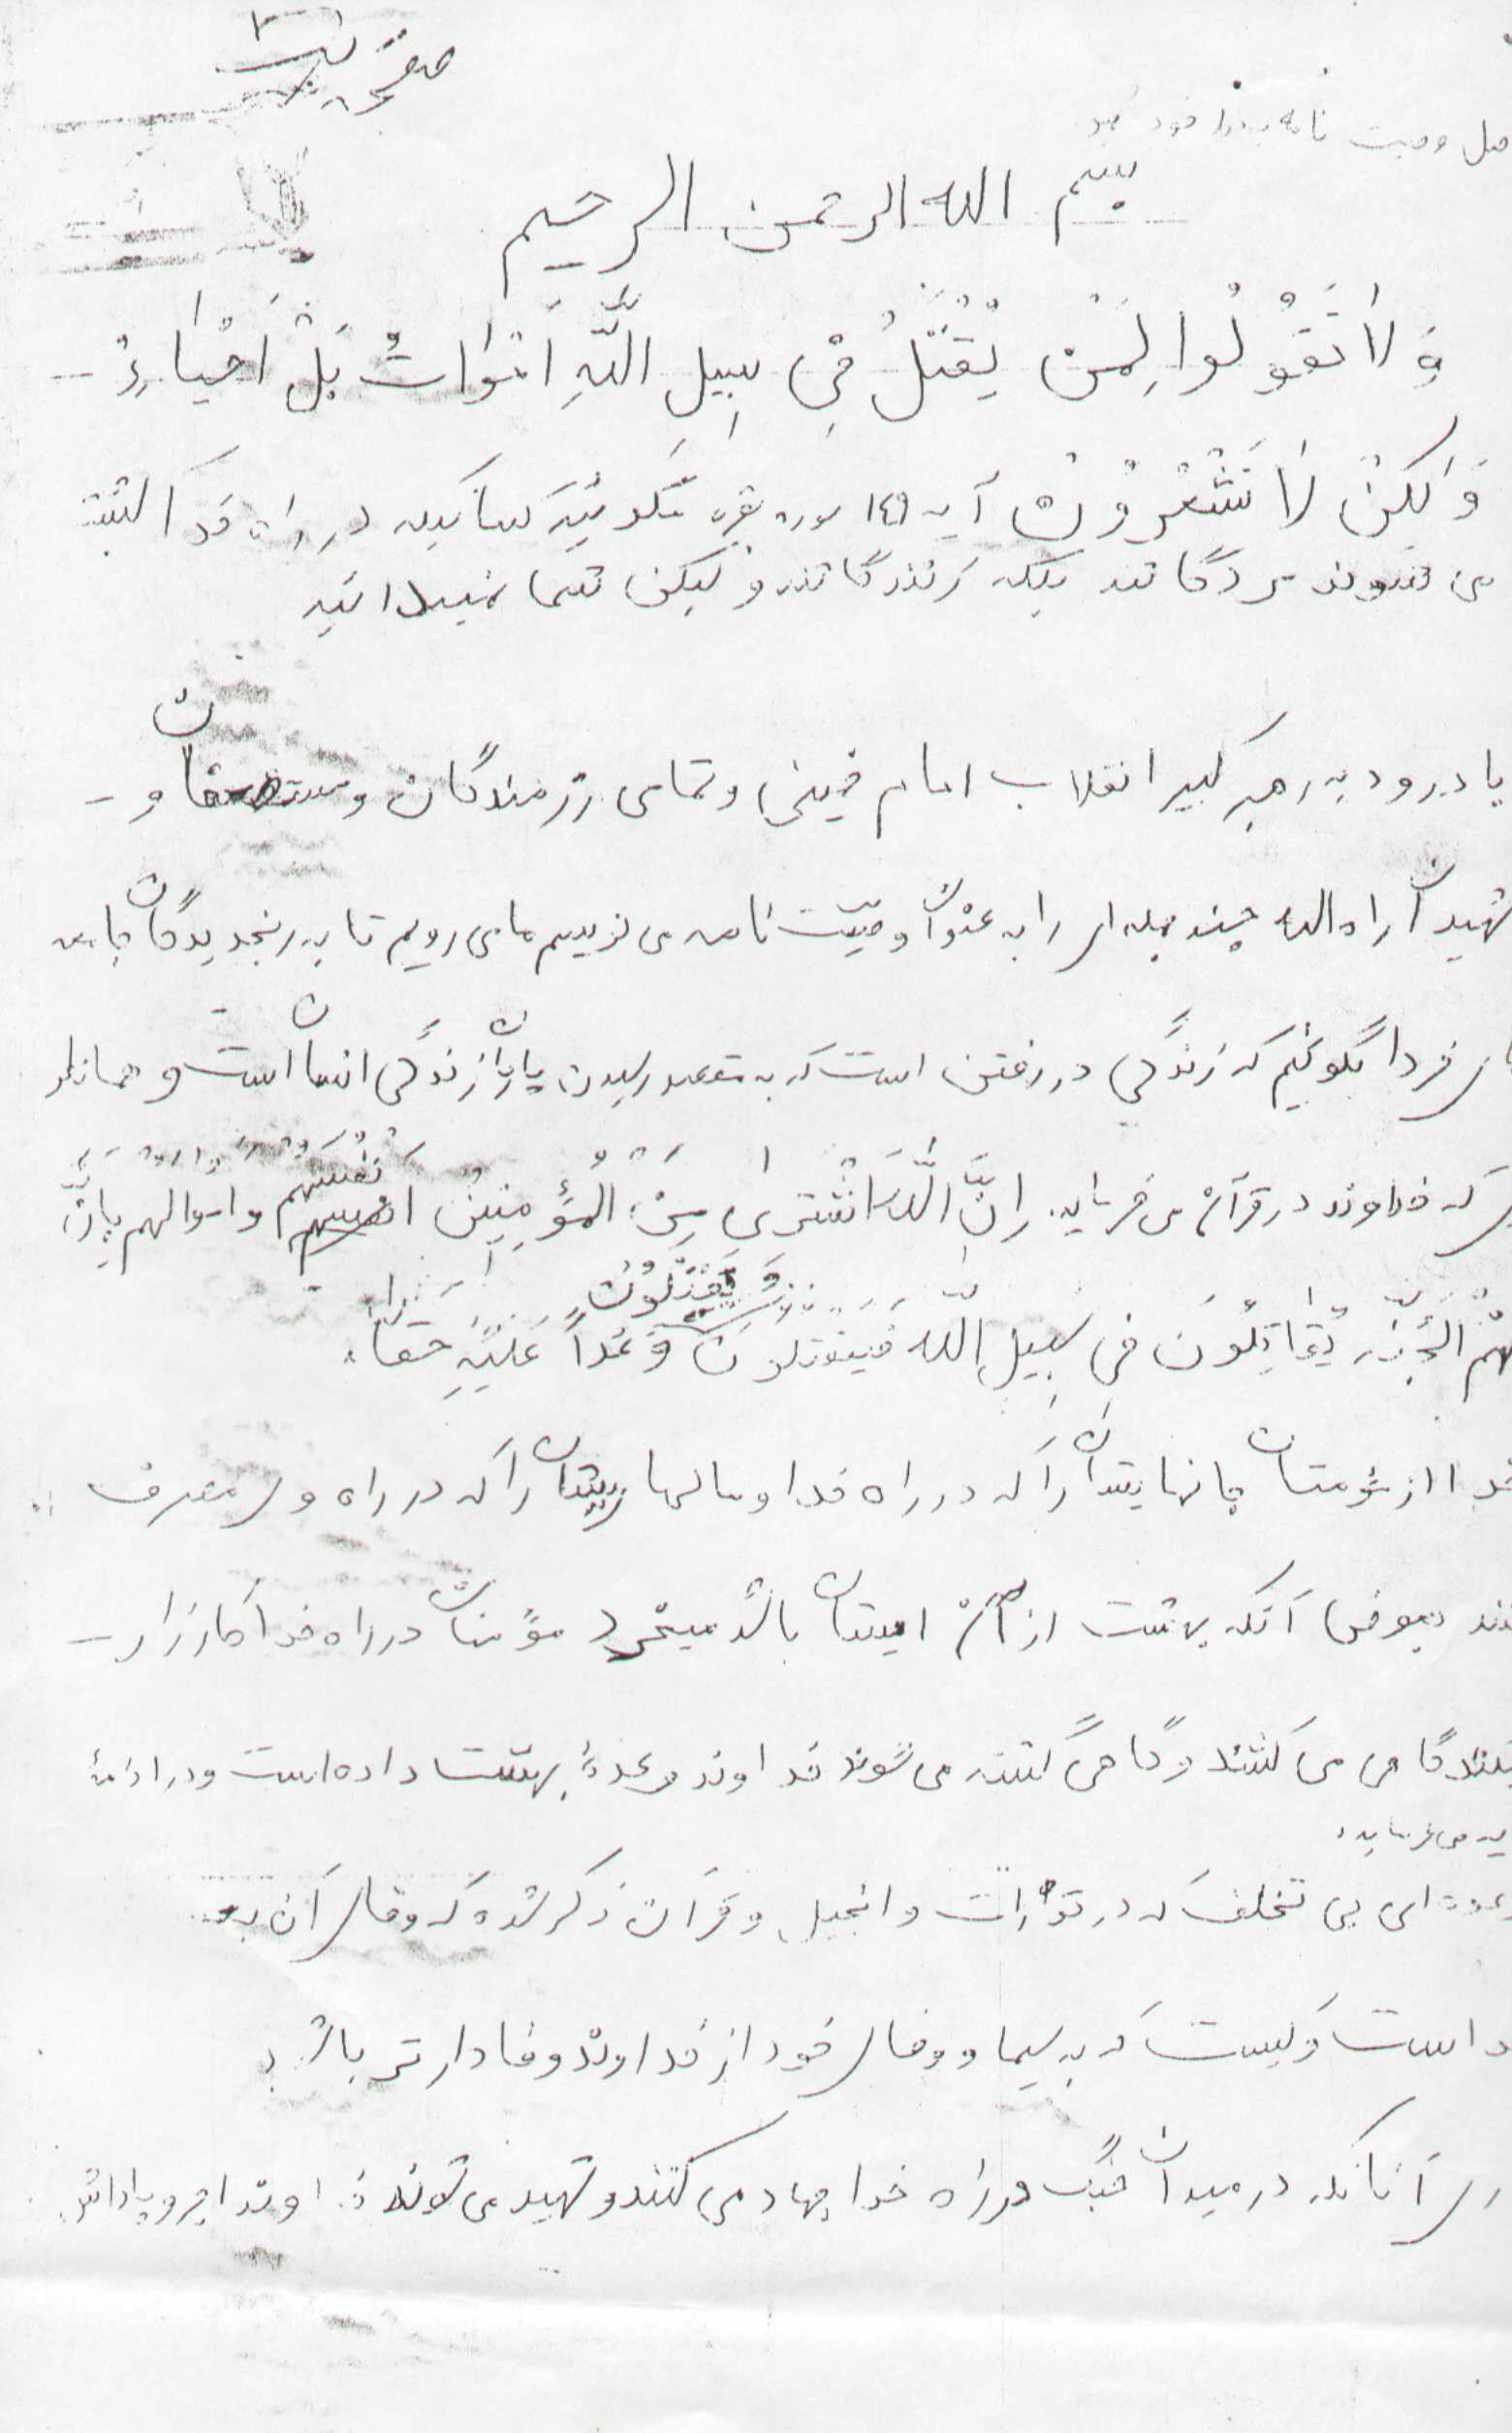 صفحه یک
وصیت نامه خود
بسم الله الرحمن الرحیم
وَلاٰ تَقُوْلُوا لِمَنْ یُقْتَلُ فِیْ سِبِیلِ اللَّهِ اَمْوٰاتُ بَلْ اَحْیٰاءُ -
وَلٰکِنْ لاٰ تَشْعُرُوْنَ آیه ۱۴۹ سوره بقره نگوئید کسانیکه در راه خدا کشته
می شوند مردگانند بلکه زندگانند ولیکن شما نمیدانید
با درود به رهبر کبیر انقلاب امام خمینی و تمامی رزمندگان و مستضعفان و -
شهیدان راه الله چند جمله ای را به عنوان وصیت نامه می نویسم ما می رویم تا به رنجدیدگان جامعه
فردا بگوئیم که زندگی در رفتن است که به مقصد رسیدن پایان زندگی انسان است و همانطور
که خداوند در قرآن می فرماید. اِنَّ اللَّهَ اشْتَرٰی مِنَ الْمُؤمِنِیْنَ اَنْفُسَهُم و اموالهم بِاَنَّ
لَهُمُ الجَنَّه یُقٰاتِلُونَ فی سَبِیلِ اللّه فَیَقتلُونَ وَ یُقْتَلُونَ وَعْداً عَلَیْهِ حَقاً.
خدا از مؤمنان جانهایشان را که در راه خدا و مالهایشان را که در راه وی مصرف
بعوض آنکه بهشت از آن ایشان باشد میخرد مؤمنان در راه خدا کارزار -
گاهی می کشند و گاهی کشته می شوند خداوند وعدۀ بهشت داده است و در ادامۀ
می فرماید.
وعده ای بی تخلف که در تورات و انجیل و قرآن ذکر شده که وفای آن
است و کیست که به وفای خود از خداوند وفادارتر باشد
آنانکه در میدان جنگ در راه خدا جهاد می کنند و شهید می شوند خداوند اجر و پاداش